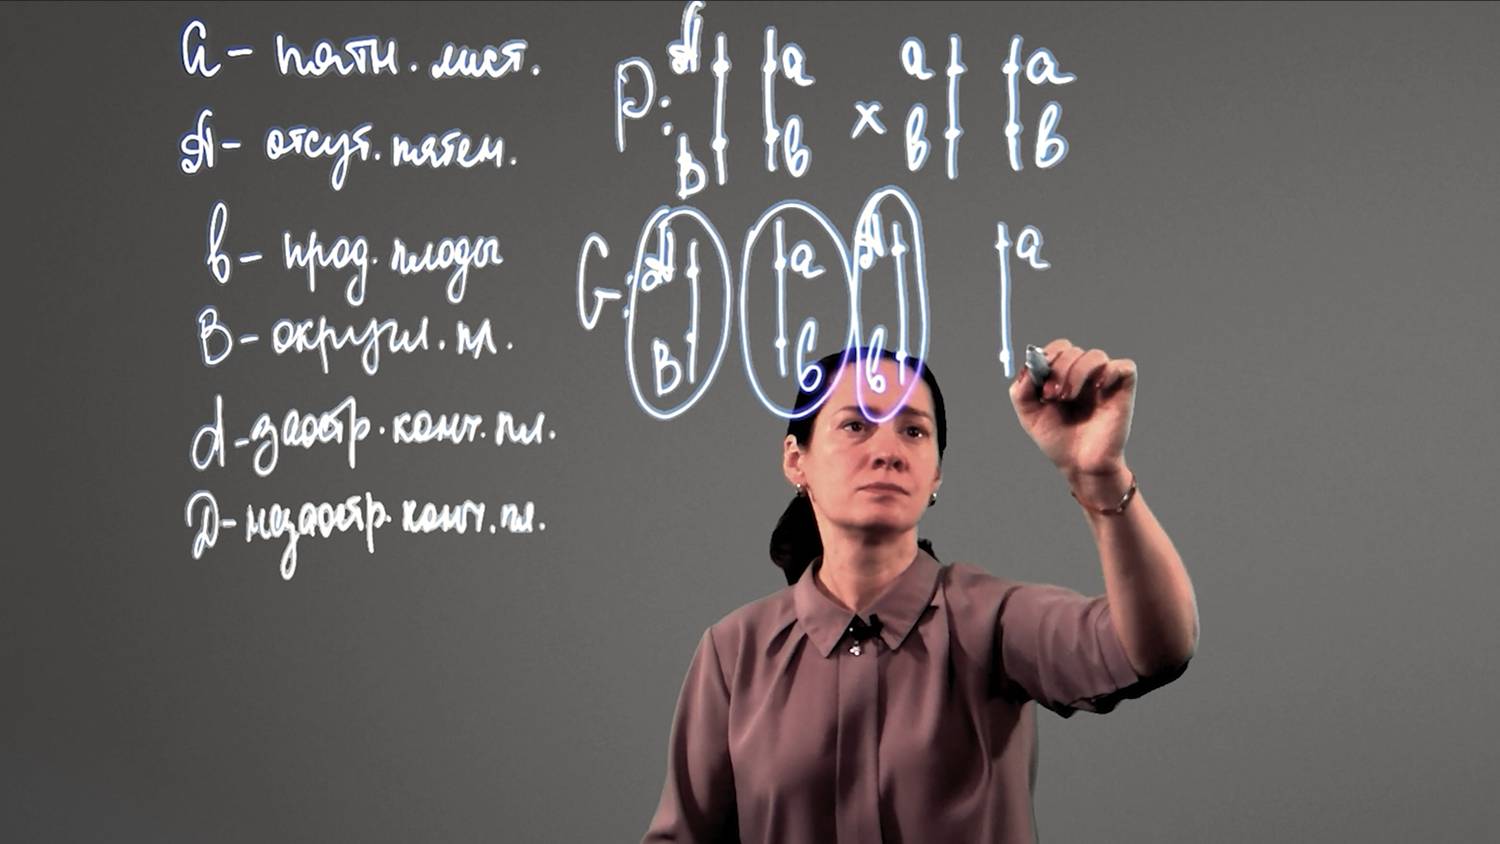 а – пятн. лист.
А – отсут. пятен.
в – прод. плоды
В – округл. пл.
d – заостр. конч. пл.
D – незаостр. конч. пл.
P: А а × а а
В в в в
G: А а А а
В в в